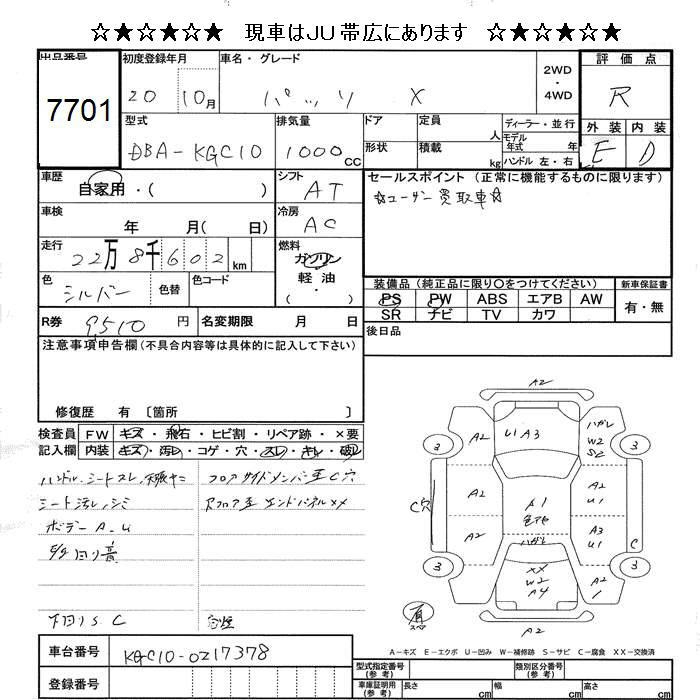 ☆★☆★☆★ 現車はJU帯広にあります ☆★☆★☆★
出品番号 初度登録年月 車名・グレード 2WD・4WD 評価点
7701 20 10月 パッソ X R
型式 排気量 ドア 定員 人 ディーラー・並行 外装 内装
DBA-KGC10 1000CC 形状 積載 kg モデル年式 年 ハンドル 左・右 E D
車歴 自家用・( ) シフト AT セールスポイント(正常に機能するものに限ります)
☆ユーザー買取車☆
車検 年 月( 日) 冷房 AC
走行 22万8千602km 燃料 ガソリン 軽油 ・( )
色 シルバー 色替 色コード
装備品(純正品に限り○をつけてください) 新車保証書
PS PW ABS エアB AW 有・無
SR ナビ TV カワ
R券 9510円 名変期限 月 日 後日品
注意事項申告欄(不具合内容等は具体的に記入して下さい)
修復歴 有〔箇所 〕
検査員記入欄 FW キズ・飛石・ヒビ割・リペア跡・×要
内装 キズ・汚レ・コゲ・穴・スレ・キレ・破レ
ハンドル、シートスレ、天張ヤニ
シート汚レ、シミ
ボデーA-U
下回りS.C
フロアサイドメンバー歪C穴
Rフロア歪 エンドパネルXX
A2
A2 U1 A3 ハガレ W2 S2
3 3
A2 A1 色アセ A2 U1
C穴 C
A2 ハガレ A3 U1
3 3
XX W2 A4 A2 1
有 スペア
A2
A-キズ E-エクボ U-凹み W-補修跡 S-サビ C-腐食 XX-交換済
車台番号 KGC10-0217378
登録番号
型式指定番号(参考) 類別区分番号(参考)
車庫証明用(参考) 長さ cm 幅 cm 高さ cm